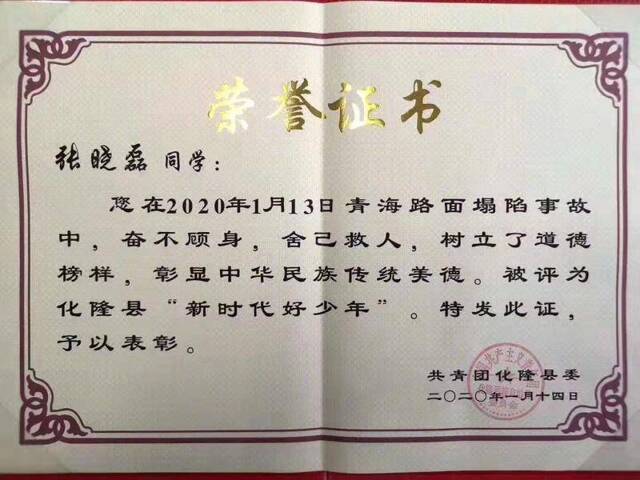 荣誉证书
张晓磊 同学：
您在2020年1月13日青海路面塌陷事故
中，奋不顾身，舍己救人，树立了道德
榜样，彰显中华民族传统美德。被评为
化隆县“新时代好少年”。特发此证，
予以表彰。
共青团化隆县委
二〇二〇年一月十四日